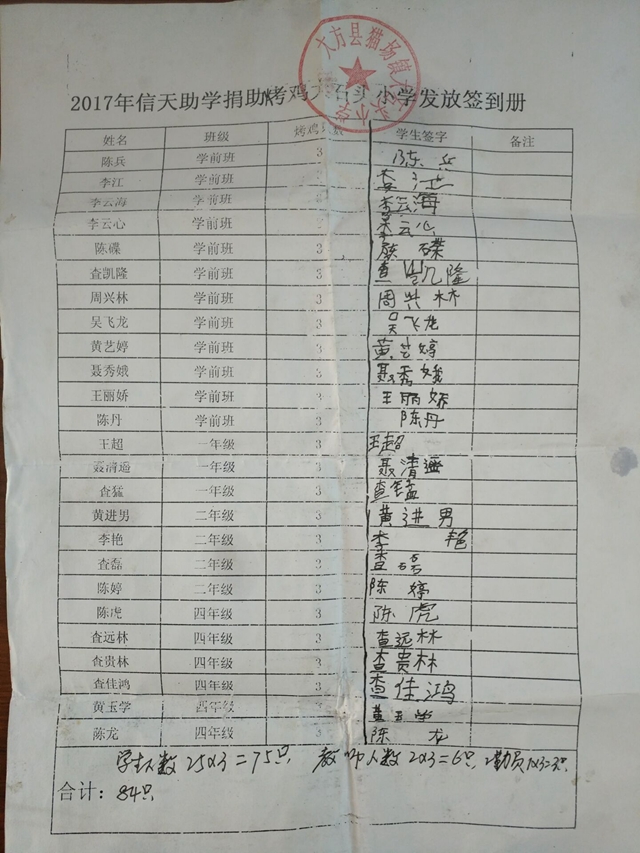 大方县猫场镇大石头小学
2017年信天助学捐助烤鸡大石头小学发放签到册
姓名 班级 烤鸡 学生签字 备注
陈兵 学前班 3 陈兵
李江 学前班 3 李江
李云海 学前班 3 李云海
李云心 学前班 3 李云心
陈碟 学前班 3 陈碟
查凯隆 学前班 3 查凯隆
周兴林 学前班 3 周兴林
吴飞龙 学前班 3 吴飞龙
黄艺婷 学前班 3 黄艺婷
聂秀娥 学前班 3 聂秀娥
王丽娇 学前班 3 王丽娇
陈丹 学前班 3 陈丹
王超 一年级 3 王超
聂清遥 一年级 3 聂清遥
查猛 一年级 3 查猛
黄进男 二年级 3 黄进男
李艳 二年级 3 李艳
查磊 二年级 3 查磊
陈婷 二年级 3 陈婷
陈虎 四年级 3 陈虎
查远林 四年级 3 查远林
查贵林 四年级 3 查贵林
查佳鸿 四年级 3 查佳鸿
黄玉学 四年级 3 黄玉学
陈龙 四年级 3 陈龙
学生人数25x3=75只, 教师人数2x3=6只, 工勤员1x3=3只
合计: 84只